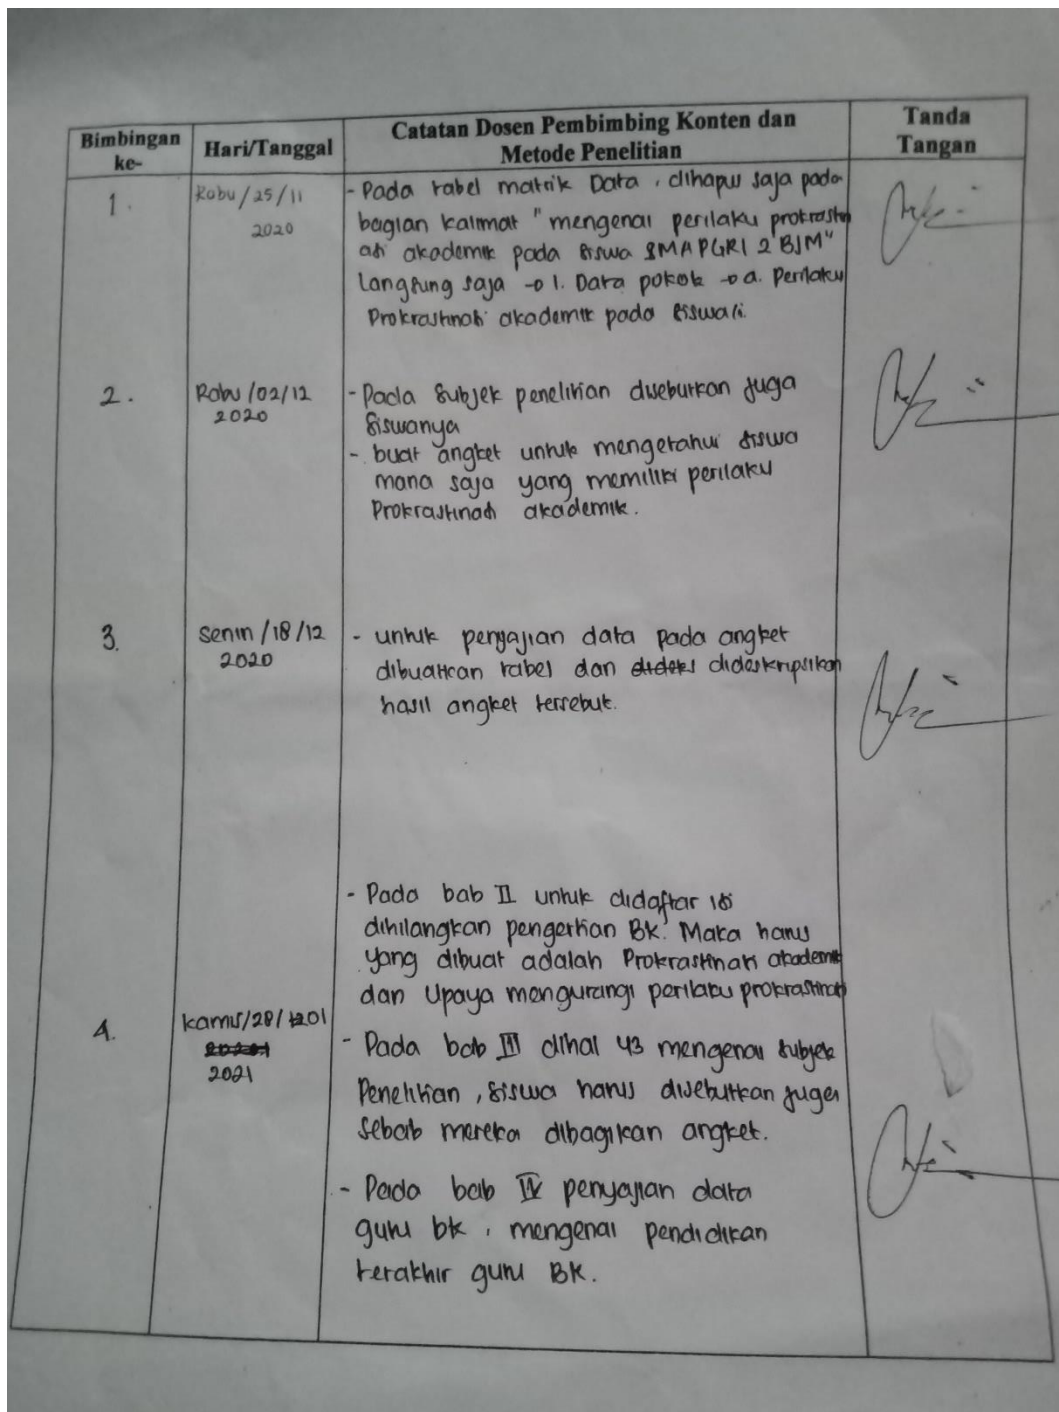 Bimbingan ke-
Hari/Tanggal
Catatan Dosen Pembimbing Konten dan
Metode Penelitian
Tanda
Tangan
1.
Rabu/25/11
2020
- Pada tabel matrik Data, dihapus saja pada
bagian kalimat "mengenai perilaku prokrastin
asi akademik pada siswa SMA PGRI 2 BJM"
Langsung saja → 1. Data pokok → a. Perilaku
Prokrastinasi akademik pada
2.
Rabu/02/12
2020
- Pada Subjek penelitian disebutkan juga
siswanya
- buat angket untuk mengetahui siswa
mana saja yang memiliki perilaku
Prokrastinasi akademik.
3.
Senin/18/12
2020
- untuk penyajian data pada angket
dibuatkan tabel dan dideskripsikan
hasil angket tersebut.
4.
Kamis/28/01
2021
- Pada bab II untuk didaftar isi
dihilangkan pengertian BK. Maka harus
yang dibuat adalah Prokrastinasi akademik
dan Upaya mengurangi perilaku prokrastinasi
- Pada bab III dihal 43 mengenai subjek
Penelitian, siswa harus disebutkan juga
sebab mereka dibagikan angket.
- Pada bab IV penyajian data
guru bk, mengenai pendidikan
terakhir guru BK.